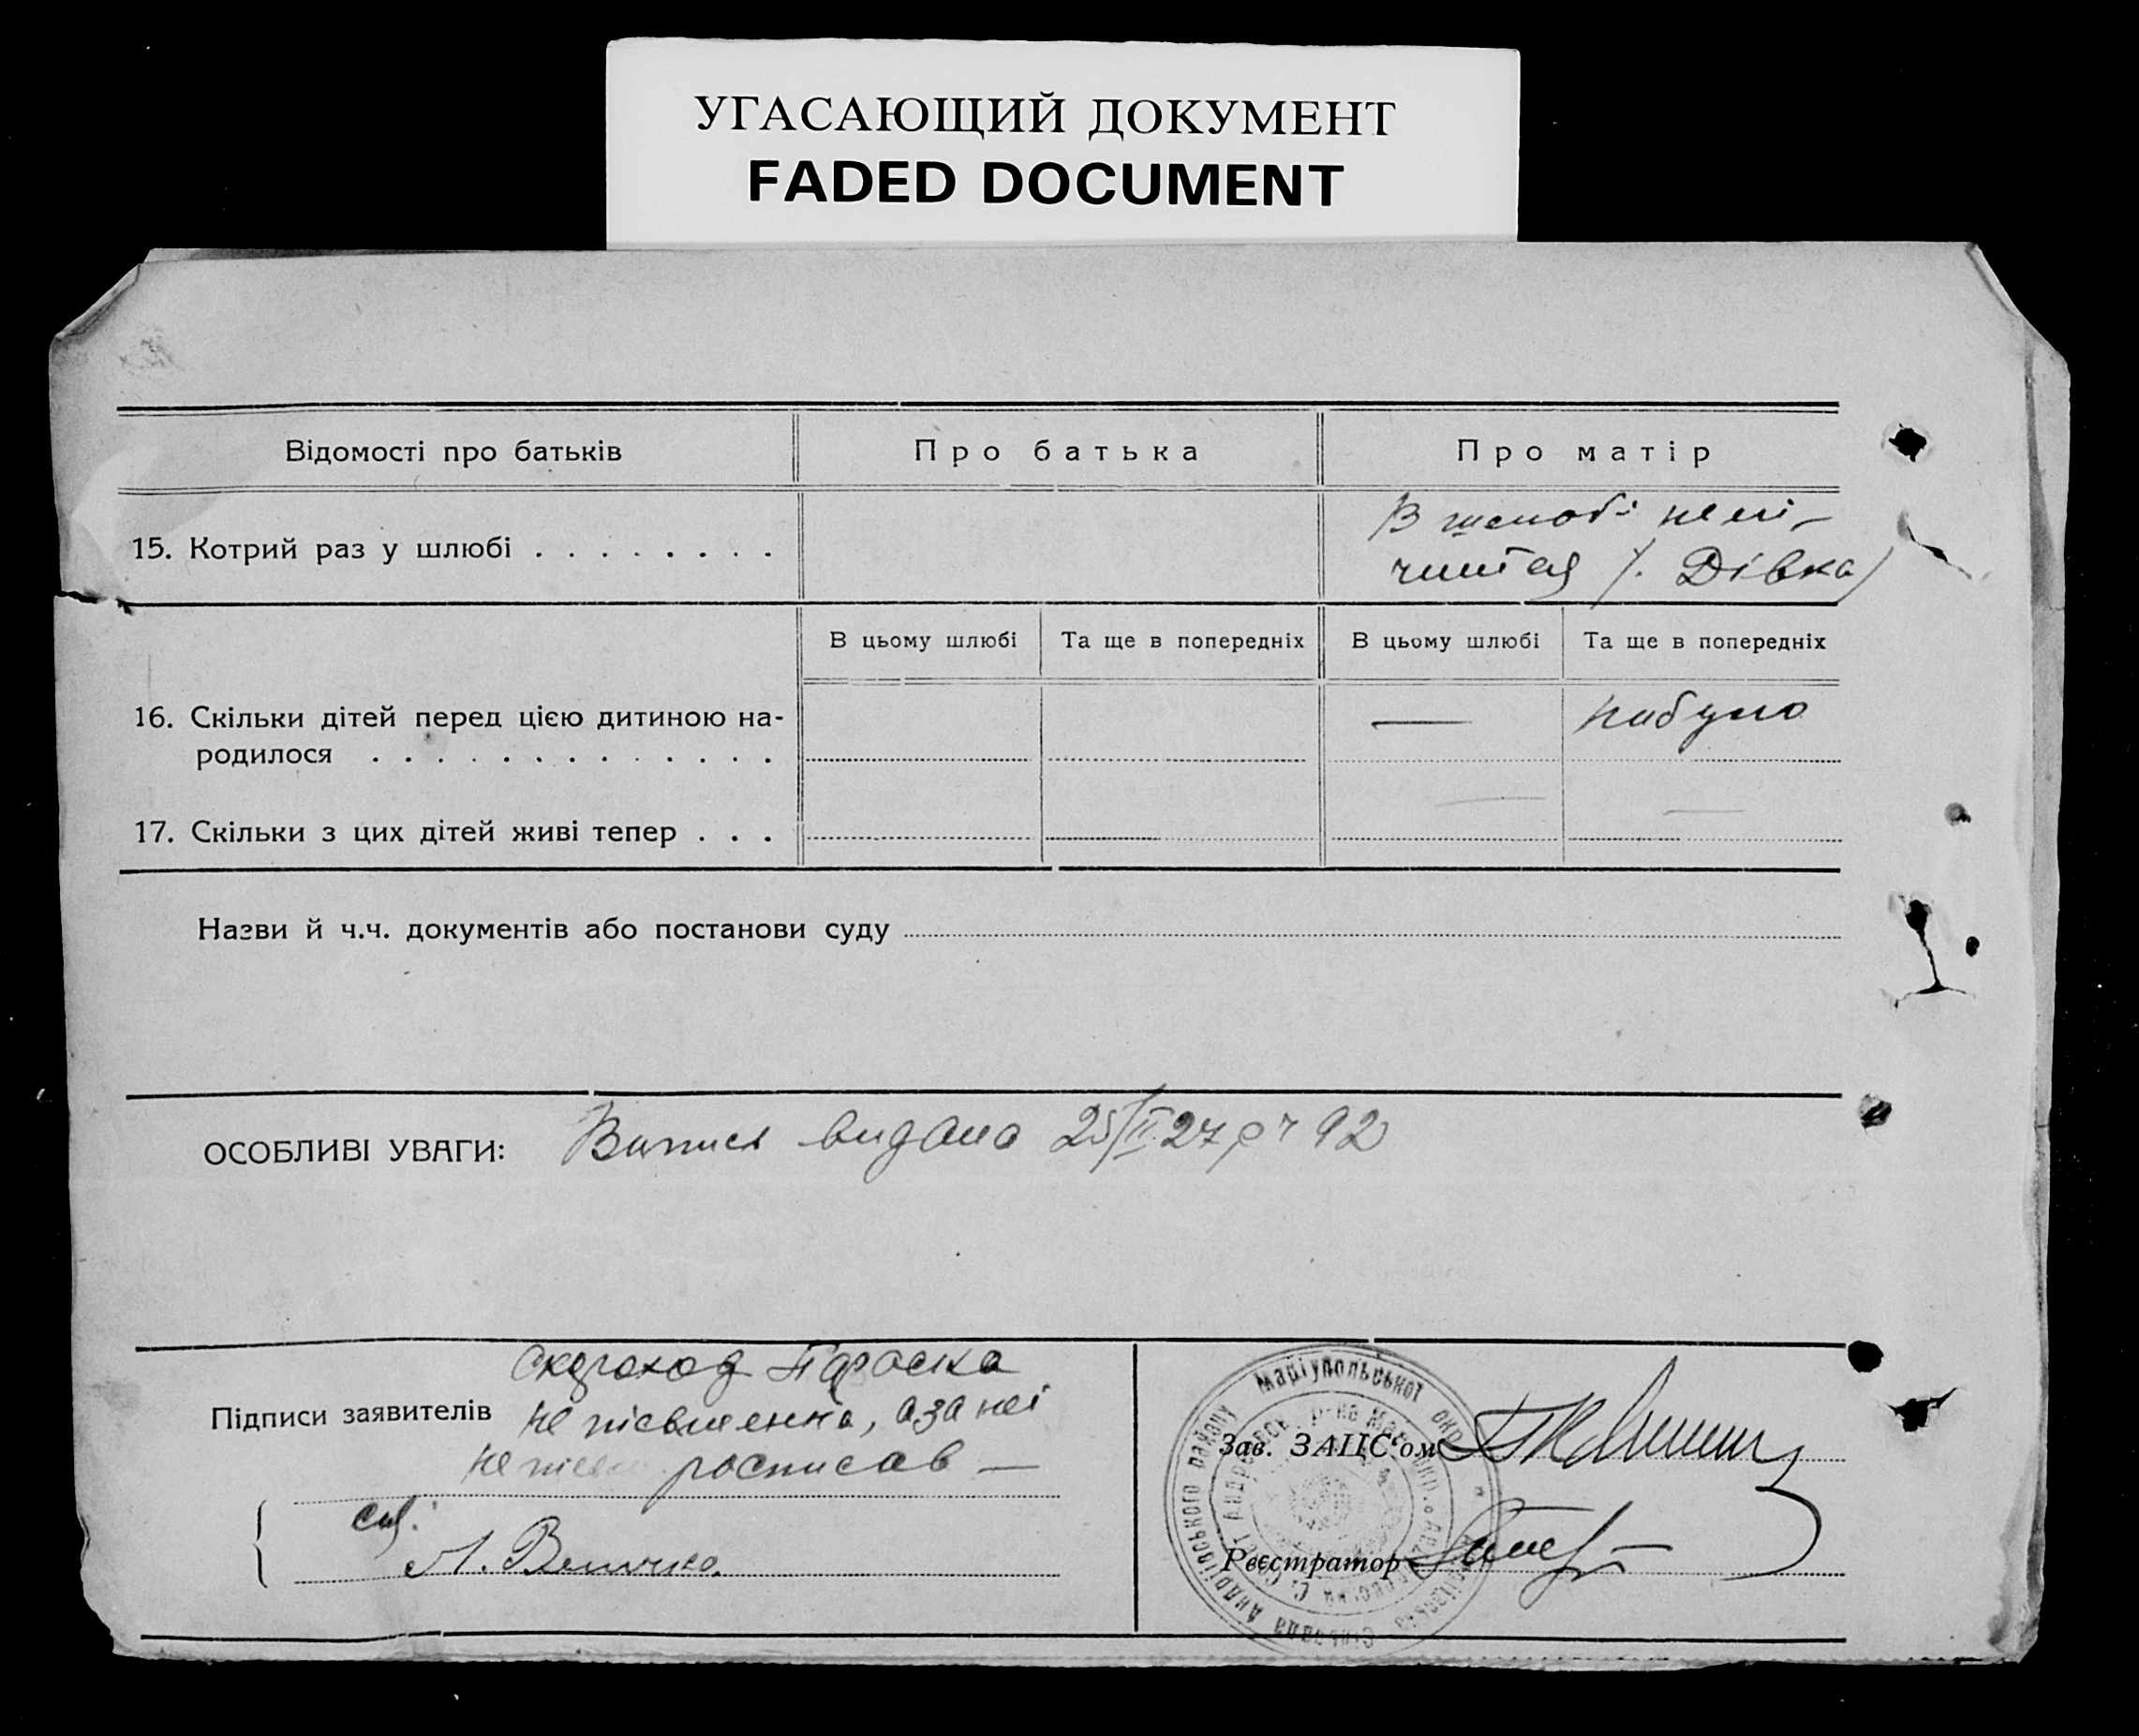 УГАСАЮЩИЙ ДОКУМЕНТ
FADED DOCUMENT
Відомості про батьків
Про батька
Про матір
15. Котрий раз у шлюбі . . . . . . . .
В шлюбі не лі-
чится /. Дівка/
В цьому шлюбі
Та ще в попередніх
В цьому шлюбі
Та ще в попередніх
16. Скільки дітей перед цією дитиною на-
родилося . . . . . . . . . . . . .
—
небуло
17. Скільки з цих дітей живі тепер . . .
—
—
Назви й ч.ч. документів або постанови суду
ОСОБЛИВІ УВАГИ: Випись видана 25/II 27 р 92
Підписи заявителів
Скороход Параска
не письменна, а за неї
росписав —
А. Величко
Зав. ЗАЦС'ом
Реєстратор
Маріупольської окр.
Андріївського району